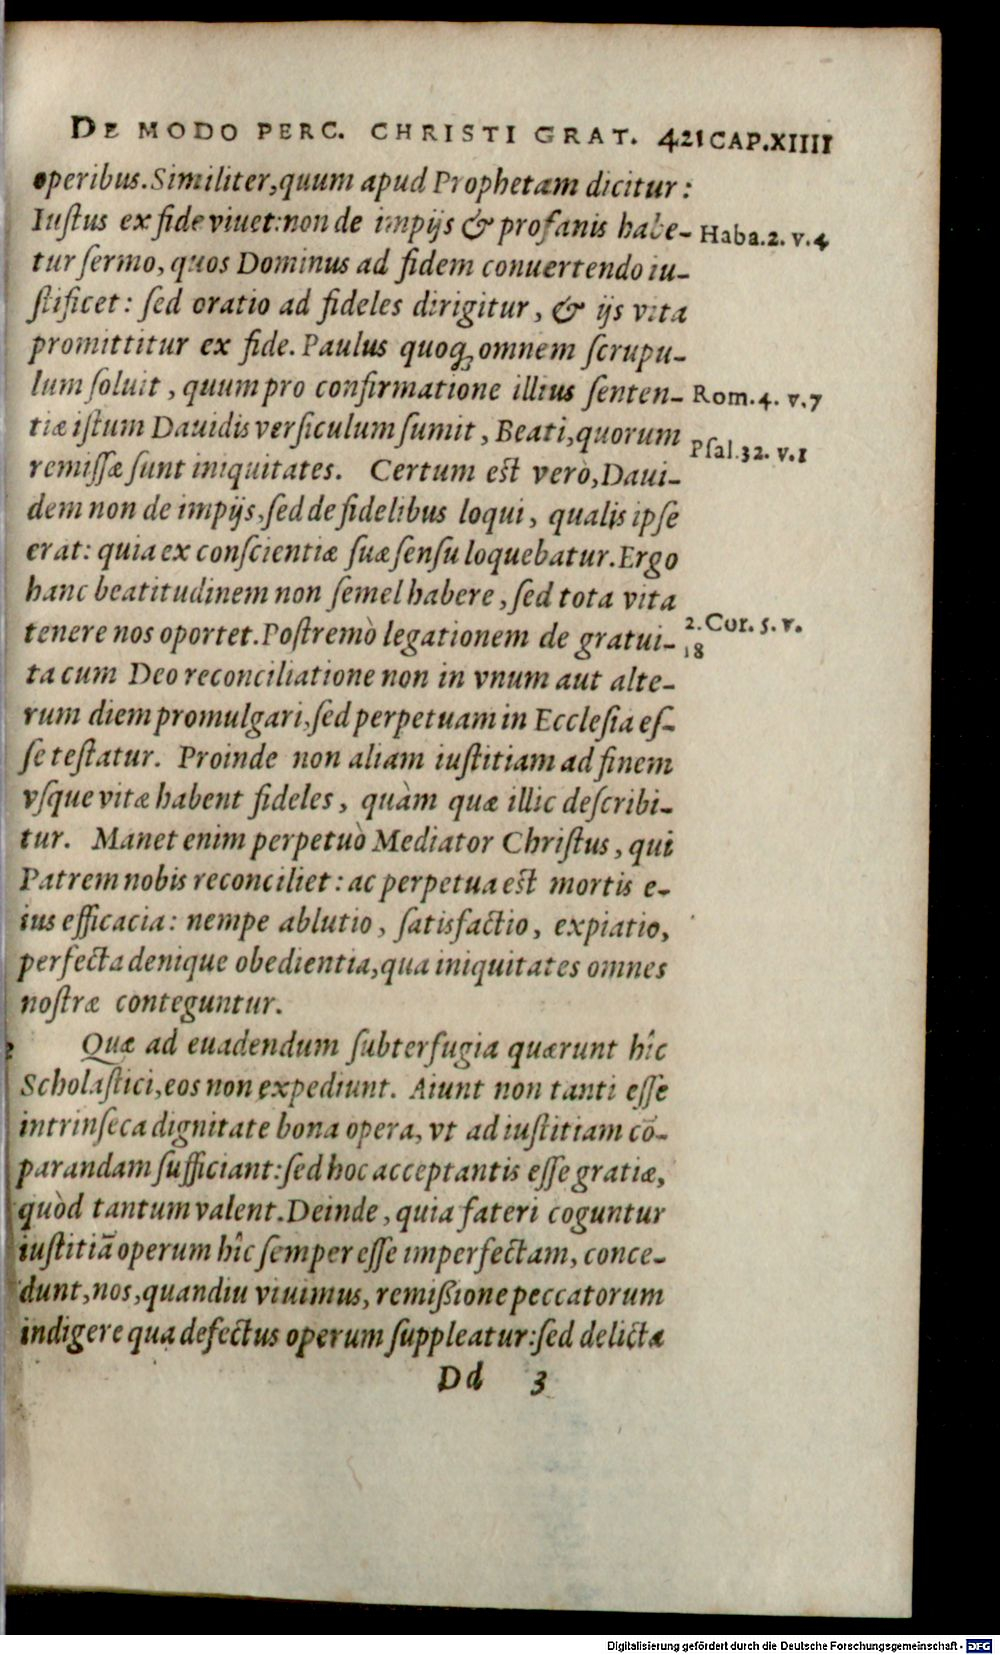 DE MODO PERC. CHRISTI GRAT. 421 CAP.XIIII
operibus. Similiter, quum apud Prophetam dicitur:
Iuſtus ex fide viuet: non de impijs & profanis habe- Haba.2. v.4
tur ſermo, quos Dominus ad fidem conuertendo iu-
ſtificet: ſed oratio ad fideles dirigitur, & ijs vita
promittitur ex fide. Paulus quoq; omnem ſcrupu-
lum ſoluit, quum pro confirmatione illius ſenten- Rom.4. v.7
tiæ iſtum Dauidis verſiculum ſumit, Beati, quorum Pſal.32. v.1
remiſſæ ſunt iniquitates. Certum eſt verò, Daui-
dem non de impijs, ſed de fidelibus loqui, qualis ipſe
erat: quia ex conſcientiæ ſuæ ſenſu loquebatur. Ergo
hanc beatitudinem non ſemel habere, ſed tota vita
tenere nos oportet. Poſtremò legationem de gratui- 2. Cor. 5. v.
18
ta cum Deo reconciliatione non in vnum aut alte-
rum diem promulgari, ſed perpetuam in Eccleſia eſ-
ſe teſtatur. Proinde non aliam iuſtitiam ad finem
vſque vitæ habent fideles, quàm quæ illic deſcribi-
tur. Manet enim perpetuò Mediator Chriſtus, qui
Patrem nobis reconciliet: ac perpetua eſt mortis e-
ius efficacia: nempe ablutio, ſatisfactio, expiatio,
perfecta denique obedientia, qua iniquitates omnes
noſtræ conteguntur.
Quæ ad euadendum ſubterfugia quærunt hîc
Scholaſtici, eos non expediunt. Aiunt non tanti eſſe
intrinſeca dignitate bona opera, vt ad iuſtitiam cō-
parandam ſufficiant: ſed hoc acceptantis eſſe gratiæ,
quòd tantum valent. Deinde, quia fateri coguntur
iuſtitiā operum hîc ſemper eſſe imperfectam, conce-
dunt, nos, quandiu viuimus, remißione peccatorum
indigere qua defectus operum ſuppleatur: ſed delicta
Dd 3
Digitalisierung gefördert durch die Deutsche Forschungsgemeinschaft - DFG